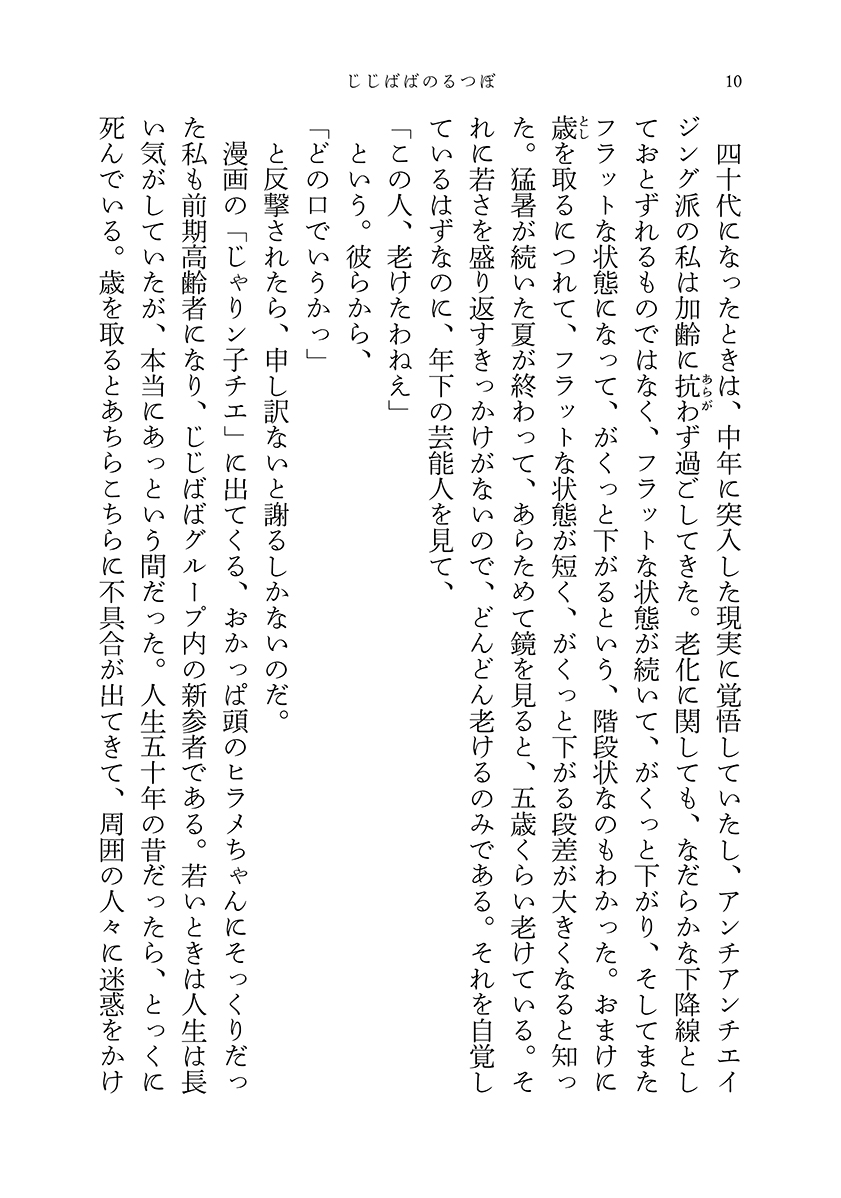 じじばばのるつぼ
10
四十代になったときは、中年に突入した現実に覚悟していたし、アンチアンチエイ
ジング派の私は加齢に抗わず過ごしてきた。老化に関しても、なだらかな下降線とし
あらが
ておとずれるものではなく、フラットな状態が続いて、がくっと下がり、そしてまた
フラットな状態になって、がくっと下がるという、階段状なのもわかった。おまけに
歳を取るにつれて、フラットな状態が短く、がくっと下がる段差が大きくなると知っ
とし
た。猛暑が続いた夏が終わって、あらためて鏡を見ると、五歳くらい老けている。そ
れに若さを盛り返すきっかけがないので、どんどん老けるのみである。それを自覚し
ているはずなのに、年下の芸能人を見て、
「この人、老けたわねえ」
という。彼らから、
「どの口でいうかっ」
と反撃されたら、申し訳ないと謝るしかないのだ。
漫画の「じゃりン子チエ」に出てくる、おかっぱ頭のヒラメちゃんにそっくりだっ
た私も前期高齢者になり、じじばばグループ内の新参者である。若いときは人生は長
い気がしていたが、本当にあっという間だった。人生五十年の昔だったら、とっくに
死んでいる。歳を取るとあちらこちらに不具合が出てきて、周囲の人々に迷惑をかけ